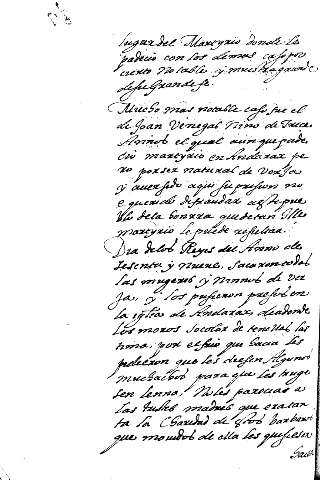 lugar del Martyrio donde le
padecio con los demas caso por
cierto notable, y muestra grande
de su Grande fe.
Mucho mas notable caso fue el
de Joan Venegas Nino de Trece
Annos el qual aunque pade
cio martyrio en Andarax pe
ro por ser natural de Verja
y auer sido aqui su prision no
e querido defraudar a este pue
blo de la honrra que de tan Illе
martyrio le puede resultar.
Dia de los Reyes del Anno de
sesenta y nueve, sacaron todos
las mugeres y Ninnos de Ver
ja, y los pusieron presos en
la iglia de Andarax, de a donde
los moros socolor de tenelles las
tima, por el frio que hacia les
pidieron que les diesen Algunos
muchachos para que les truge
sen lenna. Nales parecio a
las tristes madres que era tan
ta la Charidad de estos barbaros
que movidos de ella les quisiesen
hacer